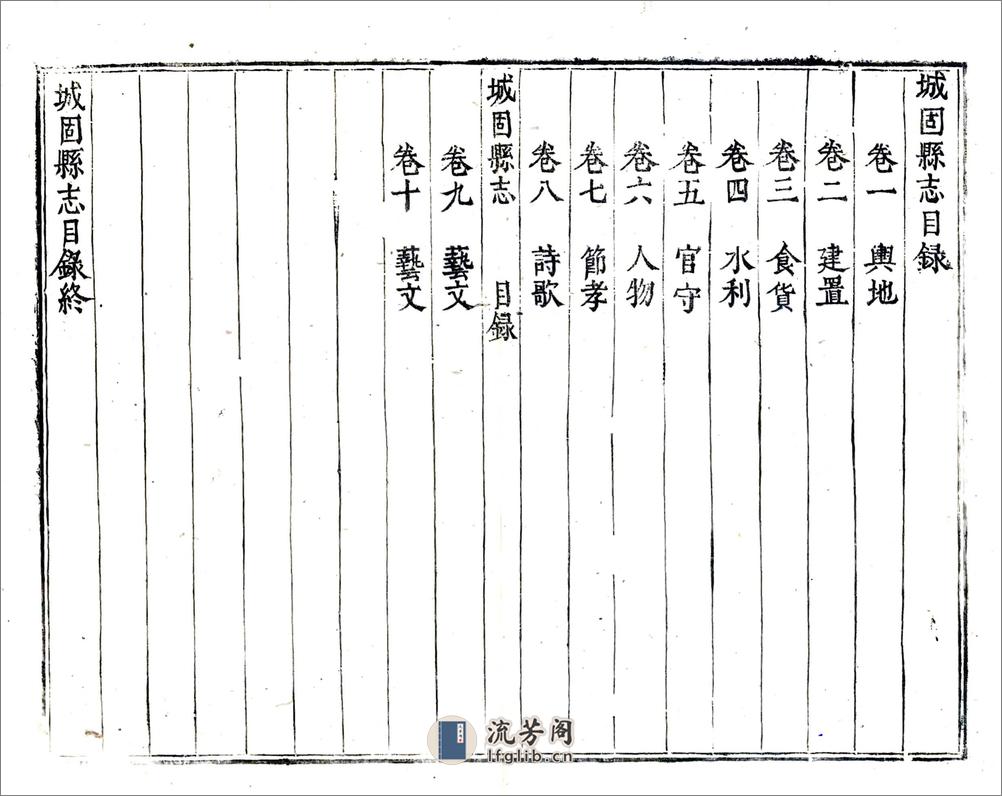 城固縣志目録
卷一　輿地
卷二　建置
卷三　食貨
卷四　水利
卷五　官守
卷六　人物
卷七　節孝
卷八　詩歌
城固縣志　目録
卷九　藝文
卷十　藝文
城固縣志目錄終
流芳阁
lfglib.cn